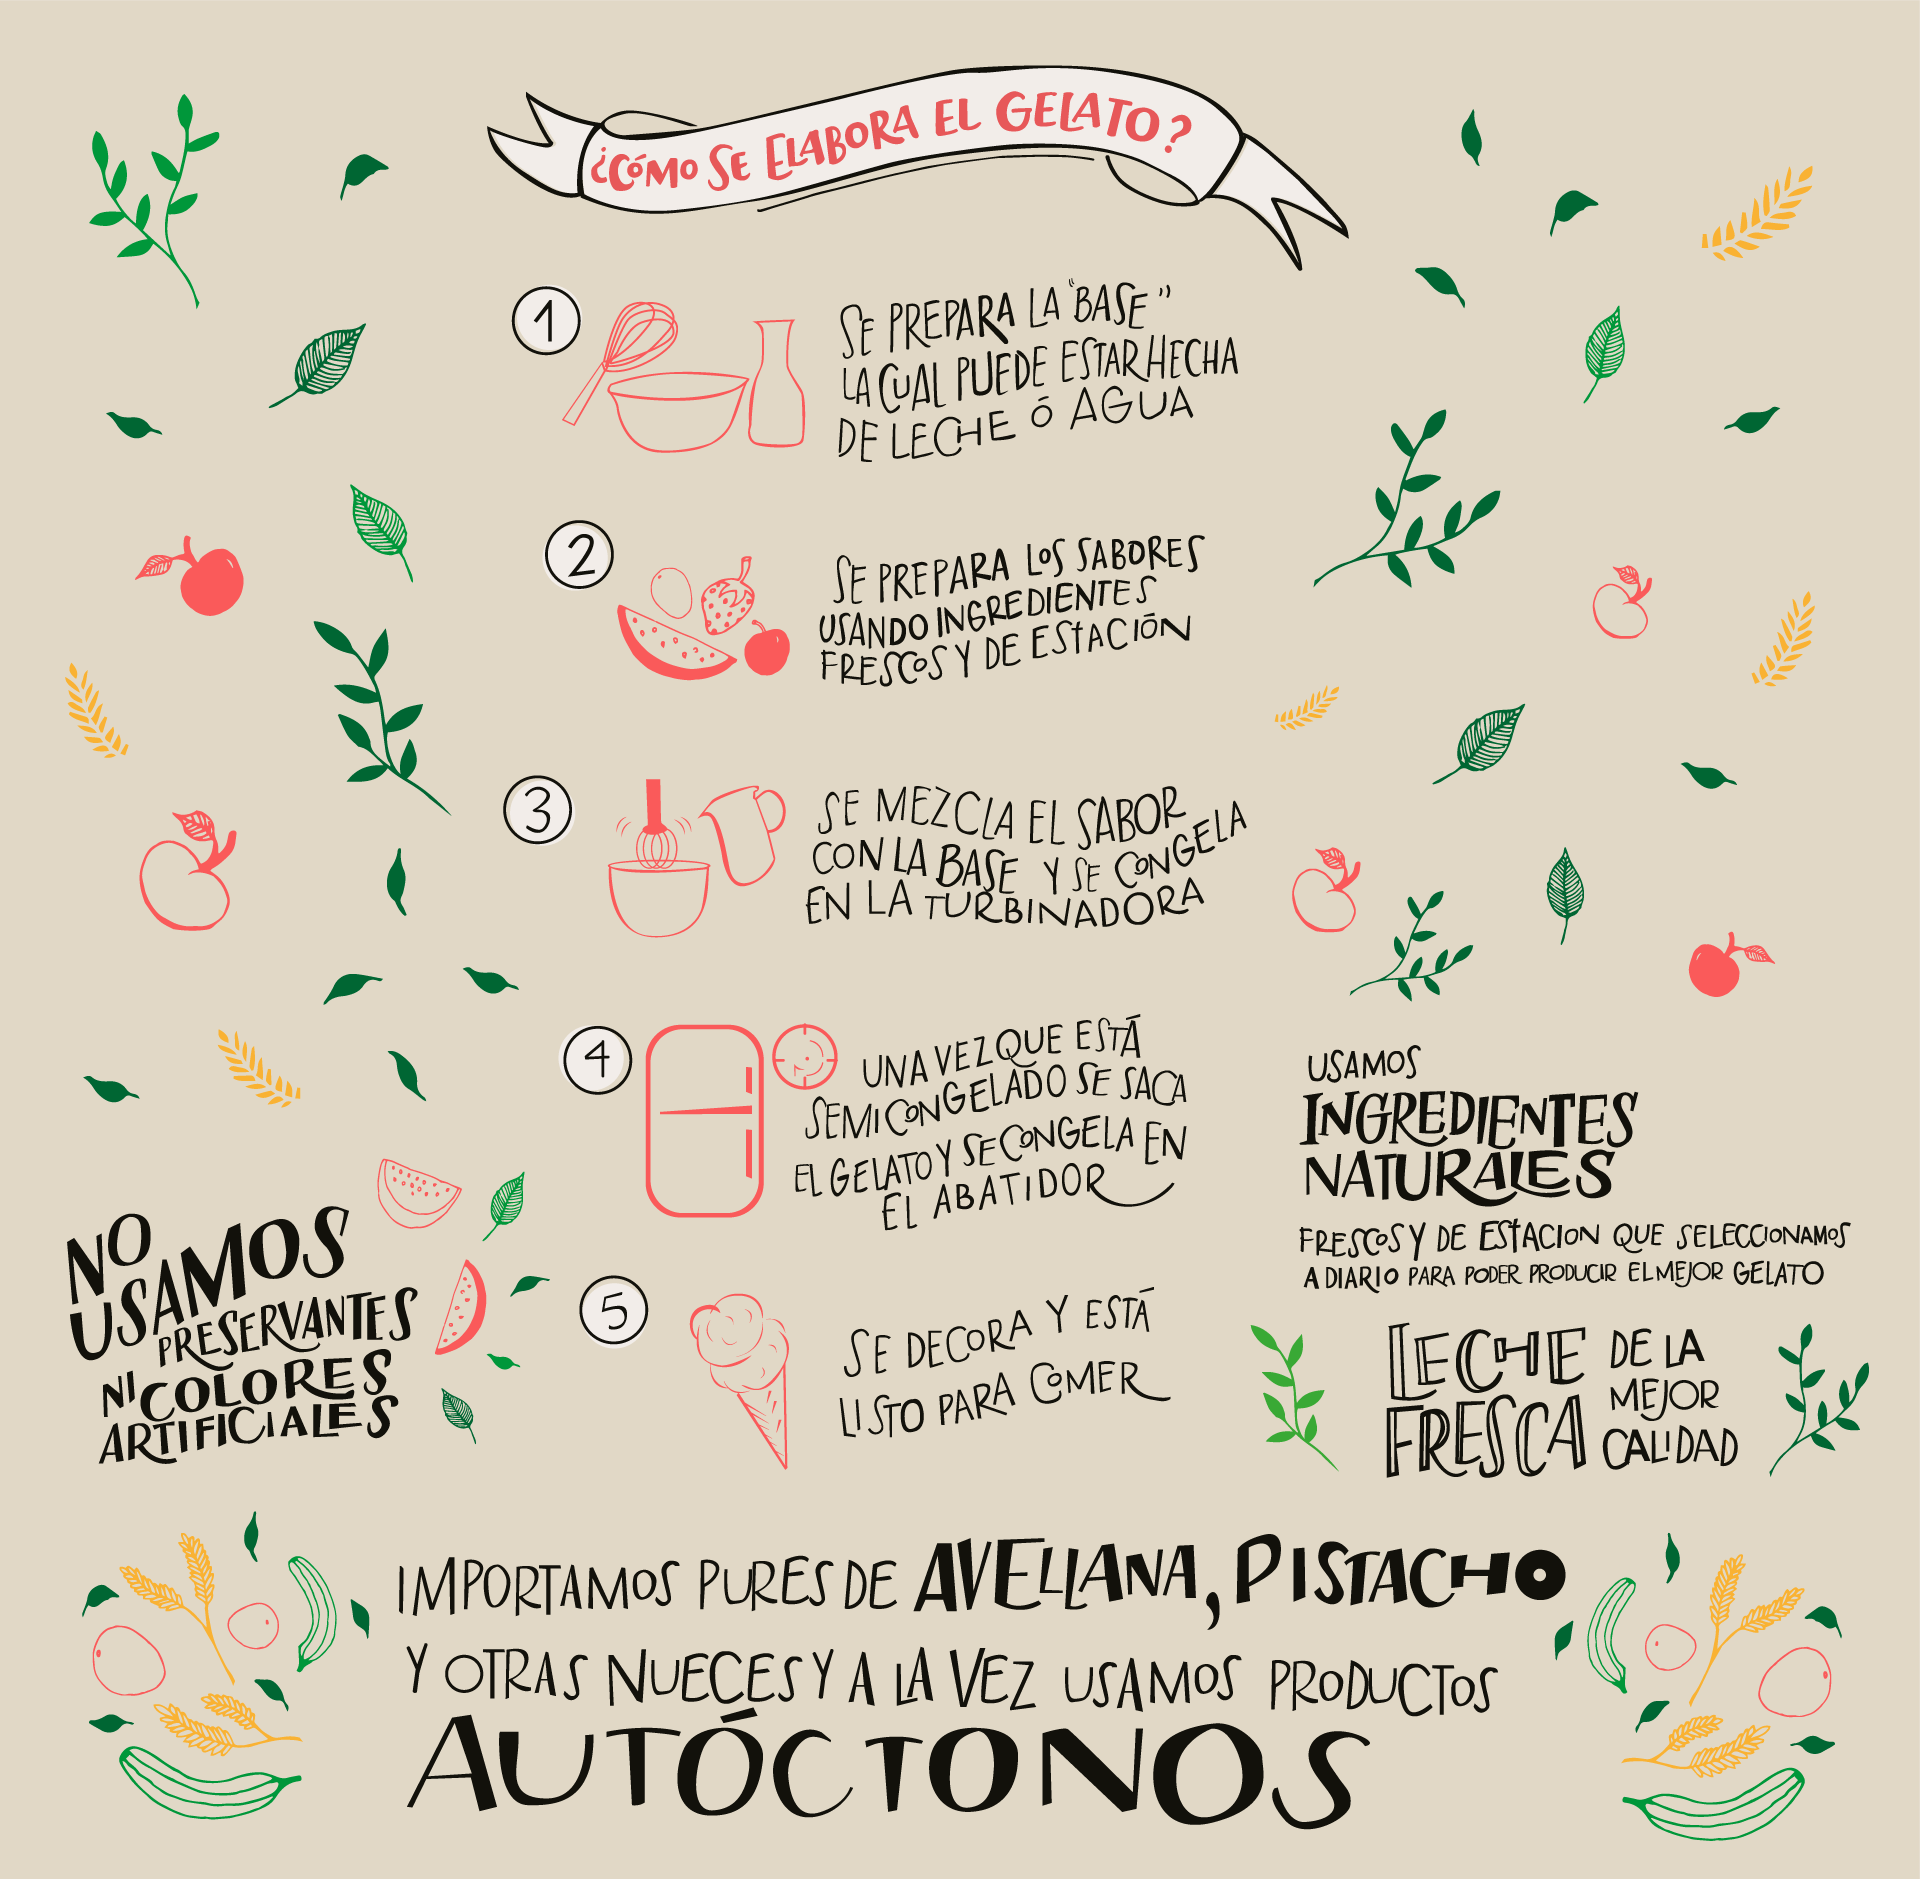 ¿CÓMO SE ELABORA EL GELATO?
1
SE PREPARA LA "BASE"
LA CUAL PUEDE ESTAR HECHA
DE LECHE Ó AGUA
2
SE PREPARA LOS SABORES
USANDO INGREDIENTES
FRESCOS Y DE ESTACIÓN
3
SE MEZCLA EL SABOR
CON LA BASE Y SE CONGELA
EN LA TURBINADORA
4
UNA VEZ QUE ESTÁ
SEMICONGELADO SE SACA
EL GELATO Y SE CONGELA EN
EL ABATIDOR
5
SE DECORA Y ESTÁ
LISTO PARA COMER
NO
USAMOS
PRESERVANTES
NI COLORES
ARTIFICIALES
USAMOS
INGREDIENTES
NATURALES
FRESCOS Y DE ESTACION QUE SELECCIONAMOS
A DIARIO PARA PODER PRODUCIR EL MEJOR GELATO
LECHE DE LA
MEJOR
FRESCA CALIDAD
IMPORTAMOS PURES DE AVELLANA, PISTACHO
Y OTRAS NUECES Y A LA VEZ USAMOS PRODUCTOS
AUTÓCTONOS